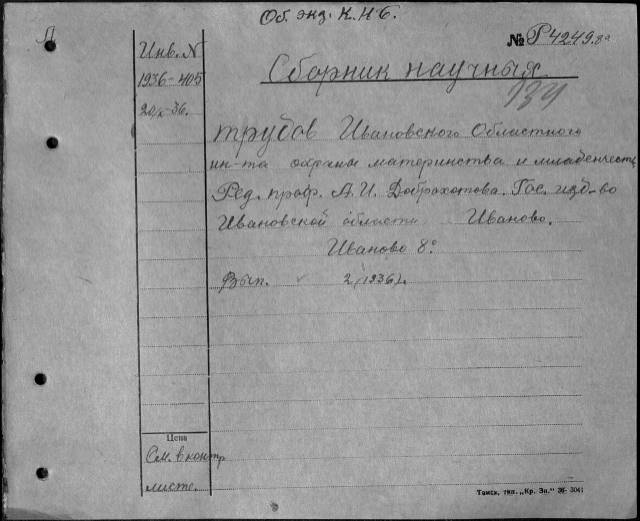 Об. экз. К.Н.Б.
№ Р4249.8°
Инв. N
1936-405
20/X-36.
Сборник научных
134
трудов Ивановского Областного
ин-та охраны материнства и младенчеств
Ред. проф. А.И. Доброхотова. Гос. изд-во
Ивановской области Иваново.
Иваново 8°
Вып. 2 (1936).
Цена
См. в контр
листе.
Томск, тип. „Кр. Зн." 36-3041